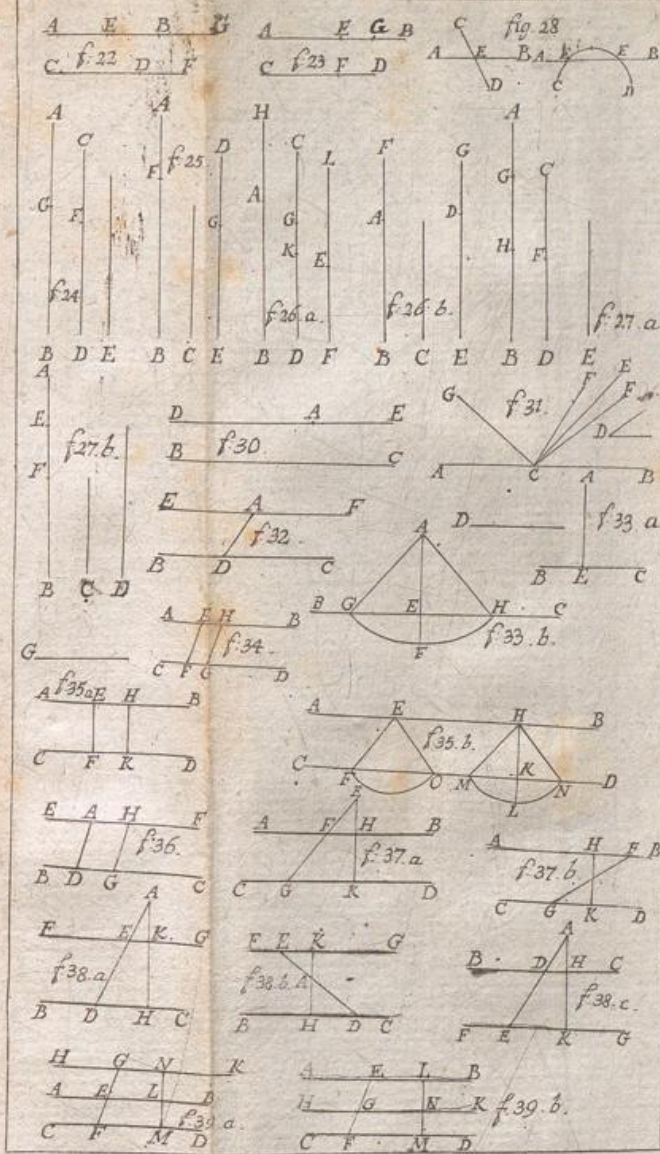 A E B G A E G B C fig. 28
C f. 22 D F C f. 23 F D A E B A E E B
D C D
A C A F. f. 25 D H C L F G A C
G F G A G K E A D G H F
f. 24 f. 26. a. f. 26. b. f. 27. a
B D E B C E B D F B C E B D E
A E F f. 27. b.
D A E
f. 30
B C
G f. 31 F E F D
A C B
E A F
f. 32
B D C
D A f. 33 a
B E C
B C D
A E H B
f. 34
C F G D
A
B G E H C
f. 33. b.
F
G
A f 35 a E H B
C F K D
A E H B
f 35. b.
C F O M K N D
L
E A H F
f. 36.
B D G C
E
A F H B
f. 37. a
C G K D
A H F B
f. 37. b
C G K D
A
F E K. G
f. 38. a
B D H C
F E K G
f. 38. b. A
B H D C
A
B D H C
f. 38. c.
F E K G
H G N K
A E L B
f. 39. a.
C F M D
A E L B
H G N K
f. 39. b.
C F M D